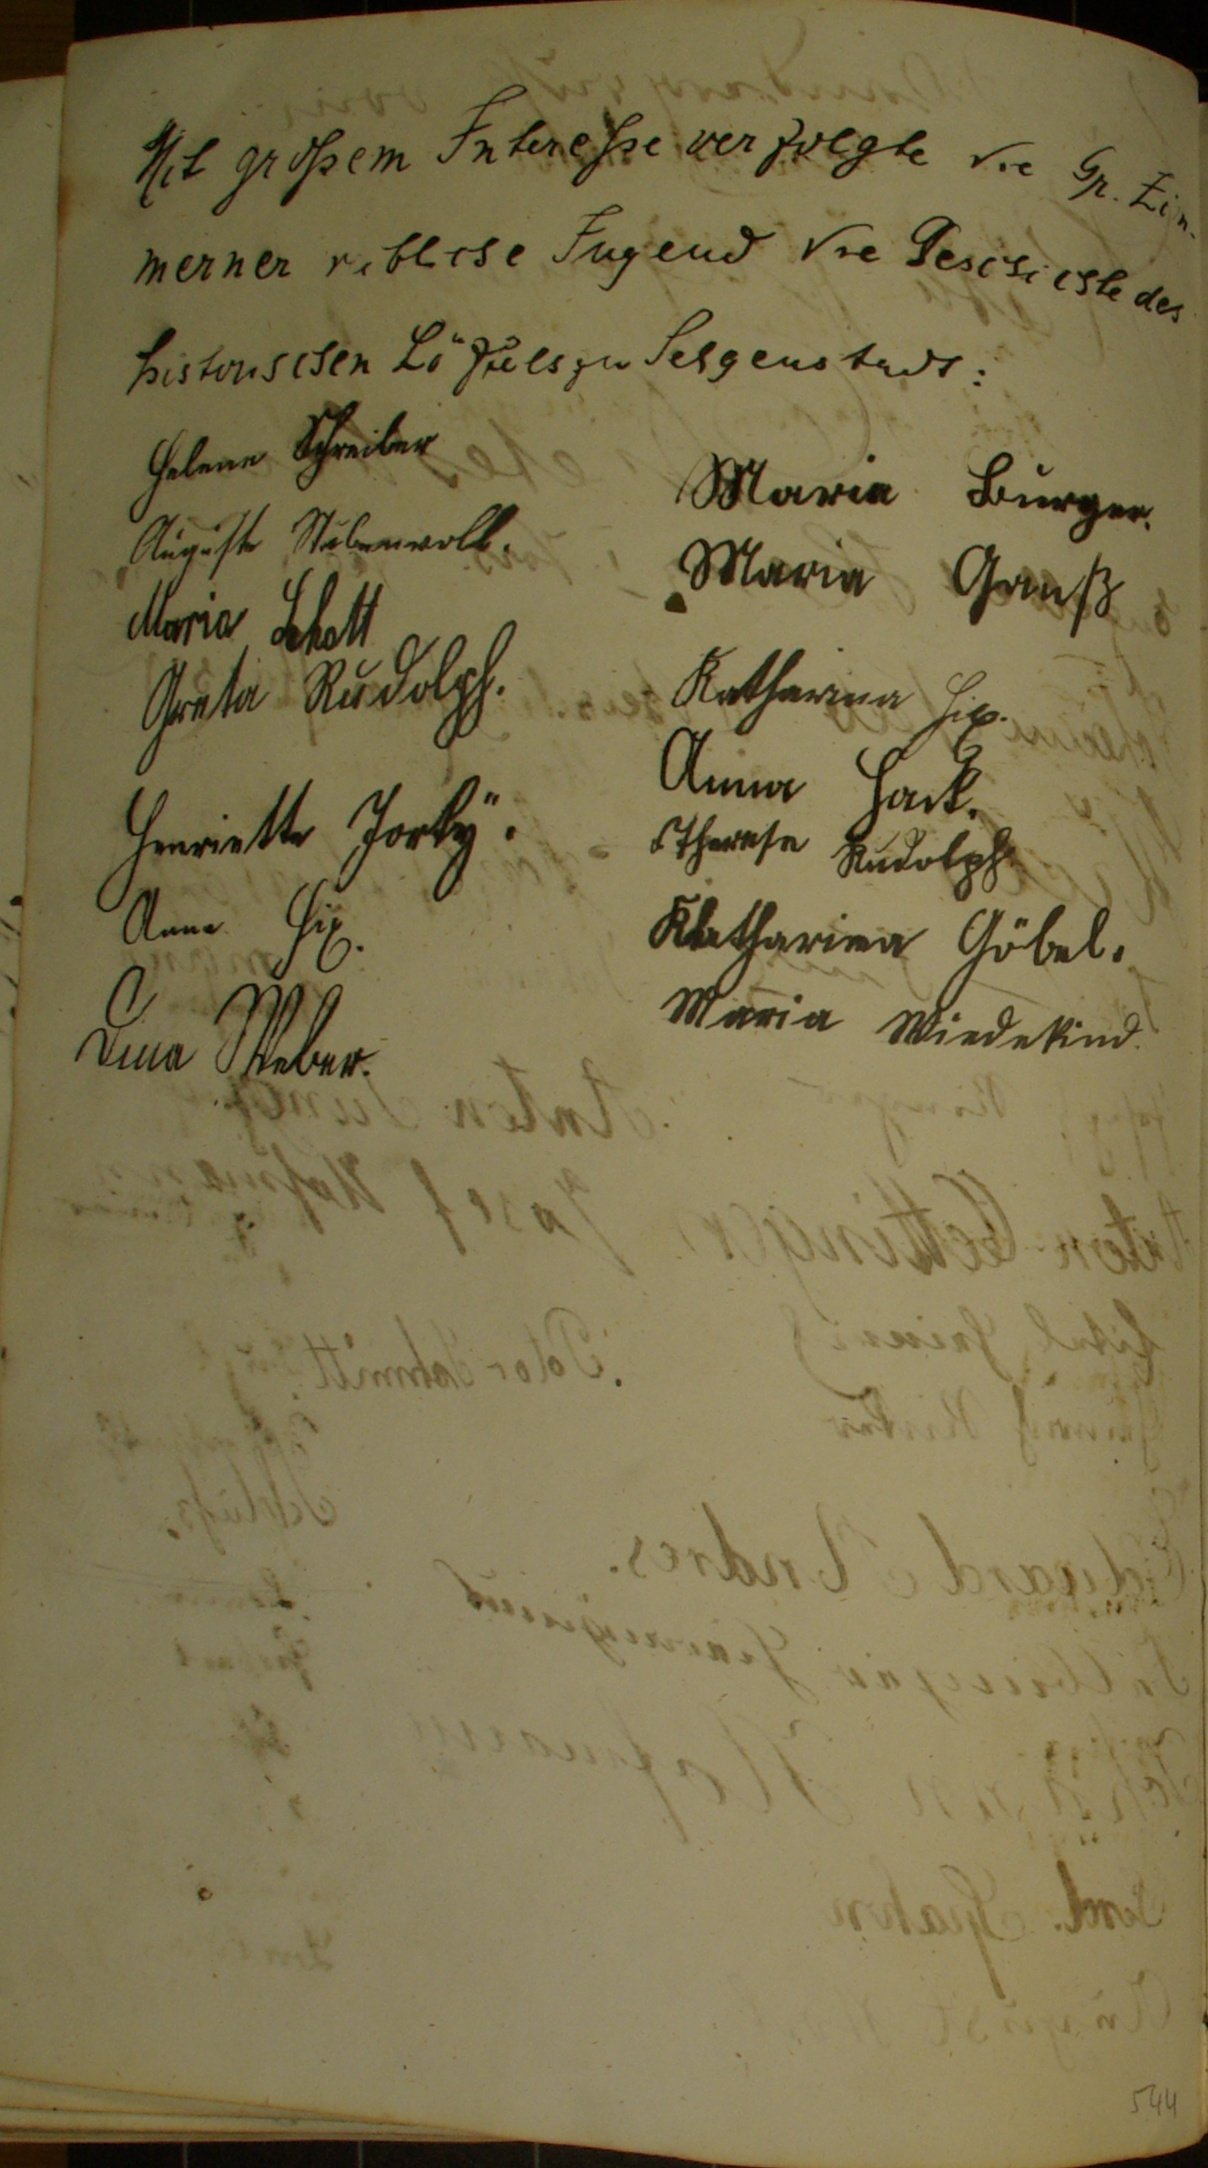 Mit großem Interesse verfolgte die Gr. Zim-
merner rebliche Jugend die Geschichte des
historischen Löffels zu Selgenstadt:
Helene Schreiber
Auguste Stubenvoll.
Maria Schott
Greta Rudolph.
Henriette
Anna Hix.
Lina Weber.
Maria Burger.
Maria Ganß
Katharina Hix.
Anna Hack.
Therese Rudolph
Katharina Göbel.
Maria Wiedekind.
544